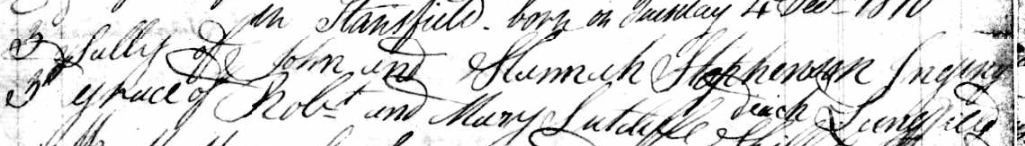 in Stansfield - born on Tuesday 4 Dec 1810
3 Sally of John and Hannah Stephenson
3 Grace of Robt and Mary Sutcliffe Langfield